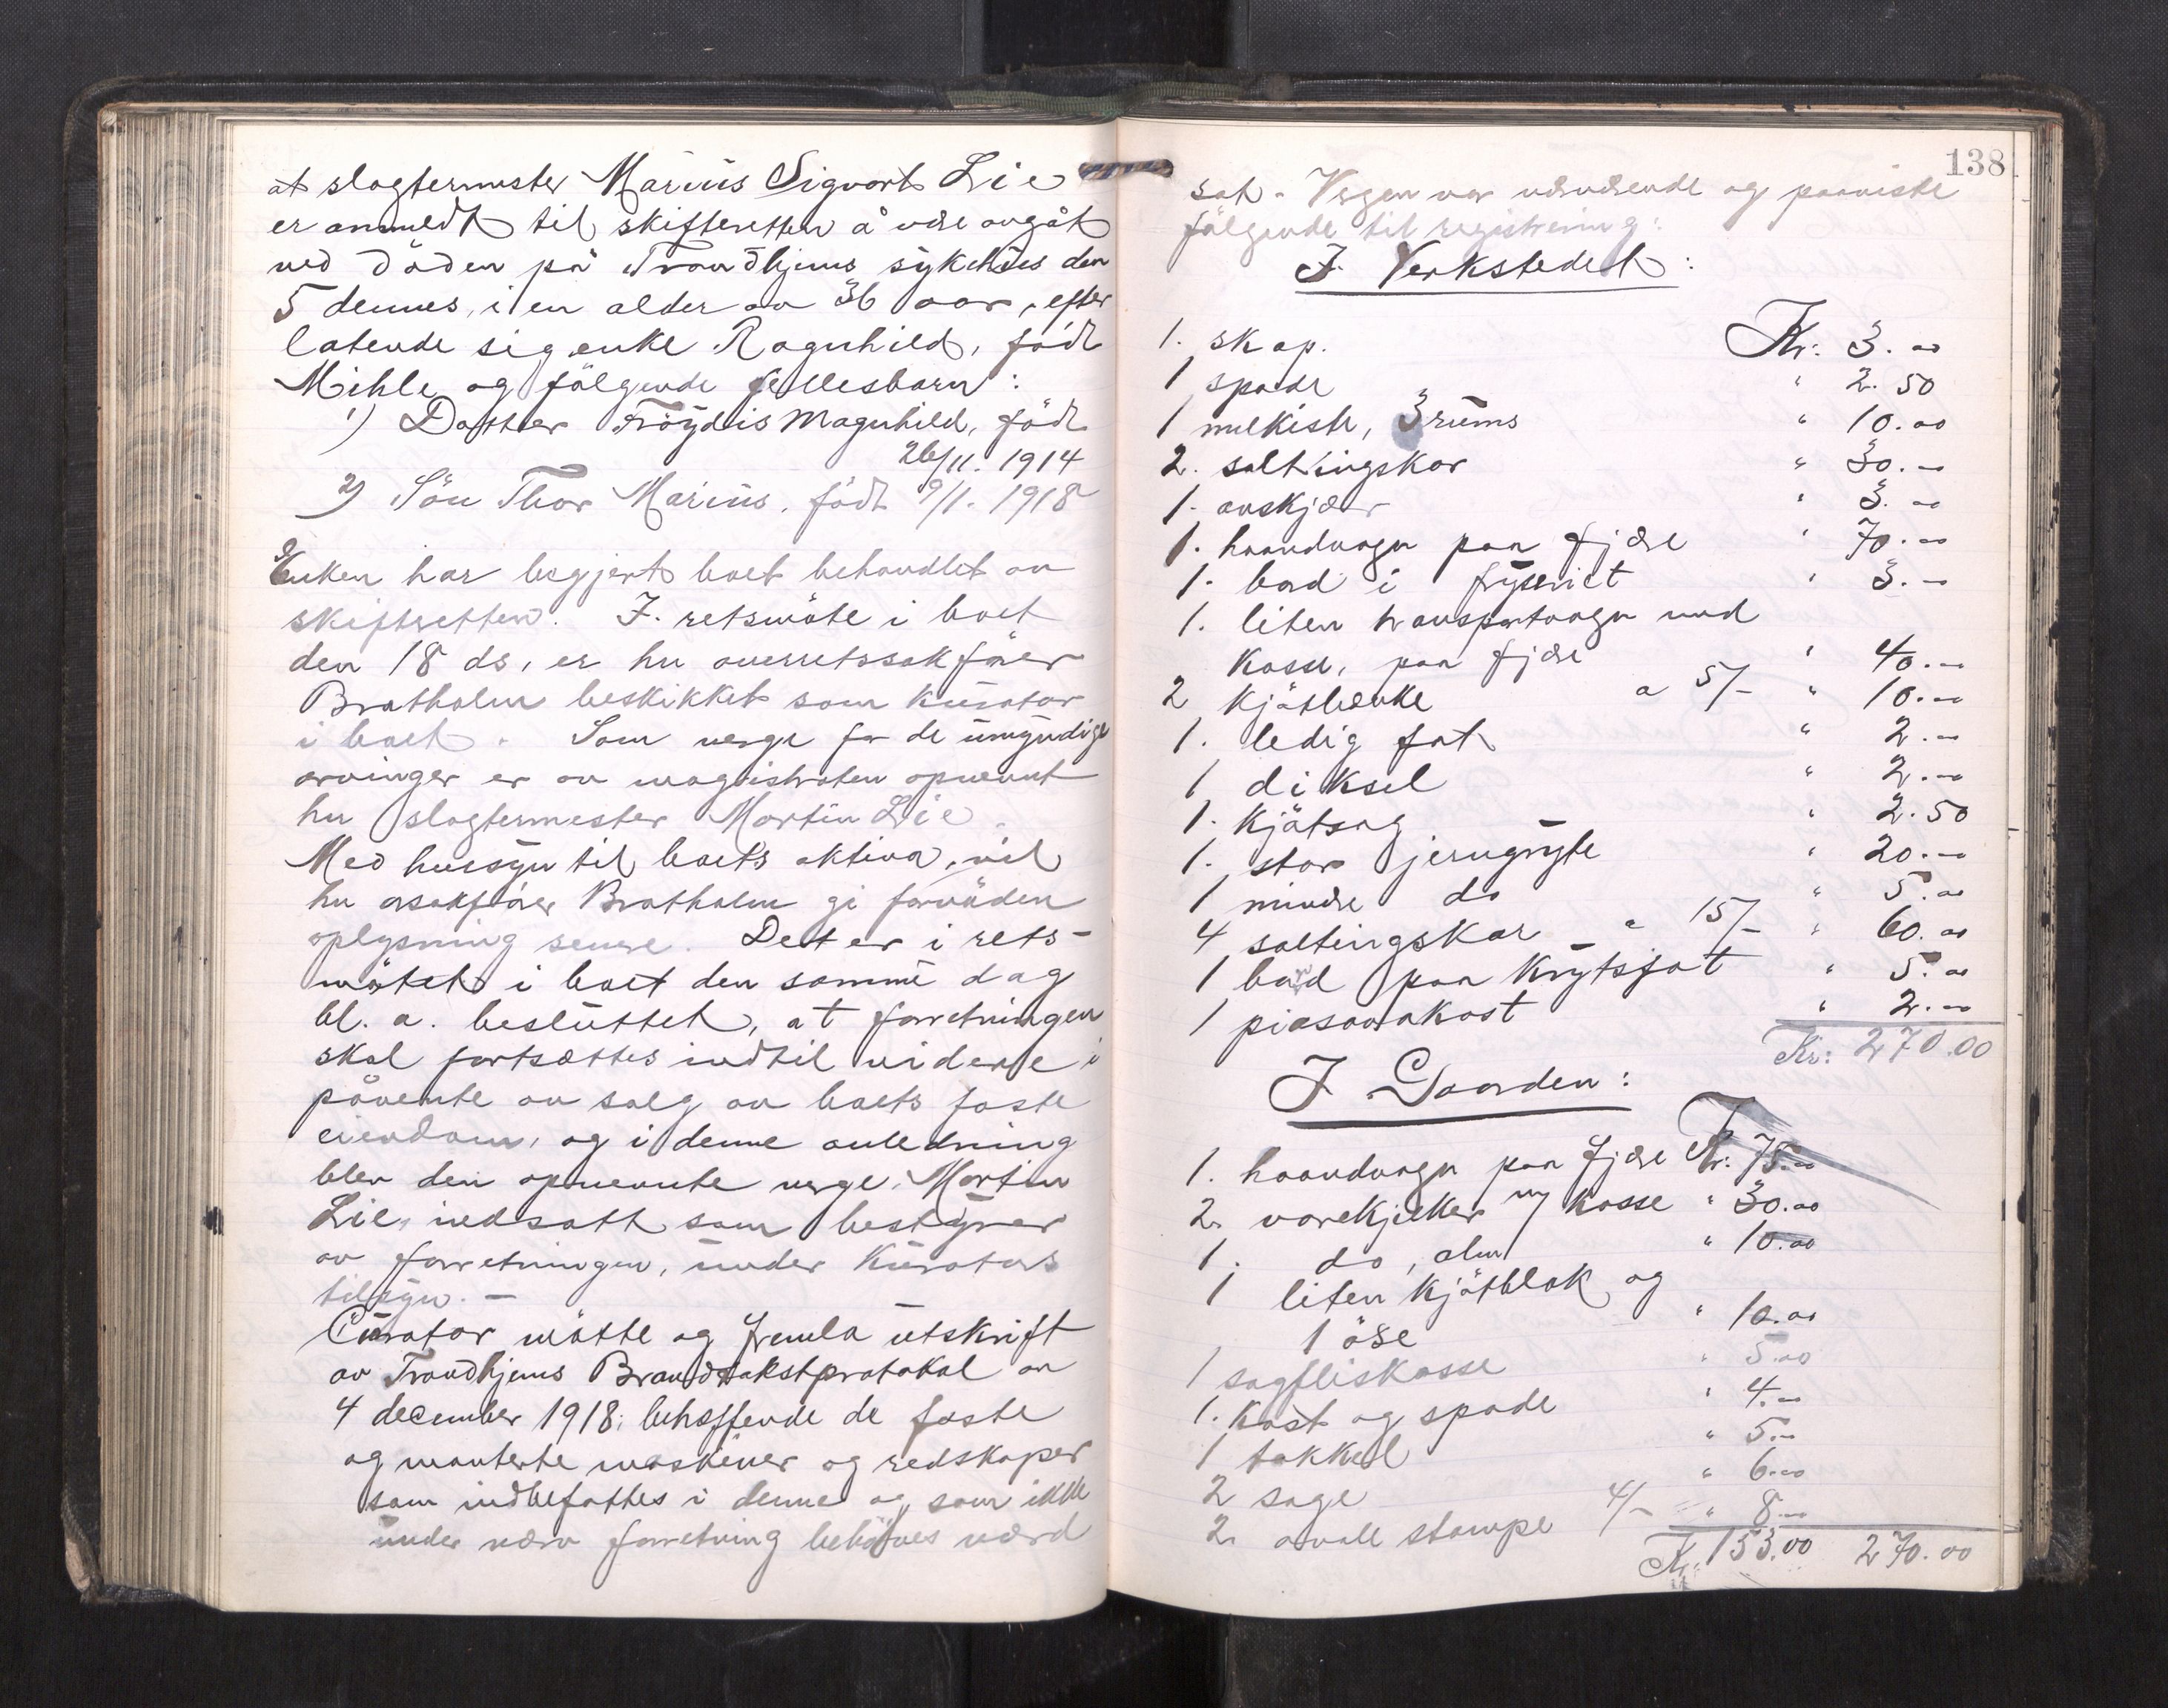 at slagtermester Marius Sigvart Lie
er anmeldt til skifteretten å være avgåt
ved döden på Trondhjems sykehus den
5 dennes, i en alder av 36 aar, efter
latende sig enke Ragnhild, född
Mihle og fölgende fellesbarn:
1) Datter Fröydis Magnhild, född
26/11. 1914
2) Sön Thor Marius, född 9/1. 1918
Enken har begjert boet behandlet av
skifteretten. I. retsmöte i boet
den 18 ds, er hr overretssakförer
Bratholm beskikket som kurator
i boet. Som verge for de umyndige
arvinger er av magistraten opnevnt
hr slagtermester Martin Lie.
Med hensyn til boets aktiva, vil
hr osakförer Bratholm gi fornöden
oplysning senere. Det er i rets-
mötet i boet den samme dag
bl. a. besluttet, at forretningen
skal fortsættes indtil videre i
påvente av salg av boets faste
eiendom, og i denne anledning
blev den opnevnte verge, Martin
Lie, indsatt som bestyrer
av forretningen, under kurators
tilsyn. —
Curator mötte og fremla utskrift
av Trondhjems Brandtakstprotokol av
4 december 1918, betreffende de faste
og monterte maskiner og redskaper
som indbefattes i denne og som ikke
under nærv forretning behöves værd
138
sat. Vergen var nærværende og paaviste
fölgende til registrering:
I Verkstedet:
1. skap. Kr: 3.00
1 spade " 2.50
1 melkiste, 3 rums " 10.00
2. saltingskar " 30.—
1. auskjær " 3.00
1. haandvogn paa fjære " 70.—
1. bord i fryseriet " 3.—
1. liten transportvogn med
kasse, paa fjære " 40.—
2 kjötbænke a 5/- " 10.—
1. ledig fat " 2.—
1 diksel " 2.—
1. kjötsag " 2.50
1. stor jerngryte " 20.—
1 mindre do " 5.00
4 saltingskar a 15/- " 60.00
1 bord paa krytsfat " 5.00
1 piasavakost " 2.—
Kr: 270.00
I Gaarden:
1. haandvogn paa fjære Kr. 75.—
2. varekjelker m/ kasse " 30.00
1. do, alm " 10.00
1 liten kjötblok og
1 öse " 10.00
1 sagfliskasse " 5.00
1. kost og spade " 4.—
1 takkel " 5.—
2 sage " 6.00
2. ovale stampe 4/- " 8.—
Kr: 153.00 270.00